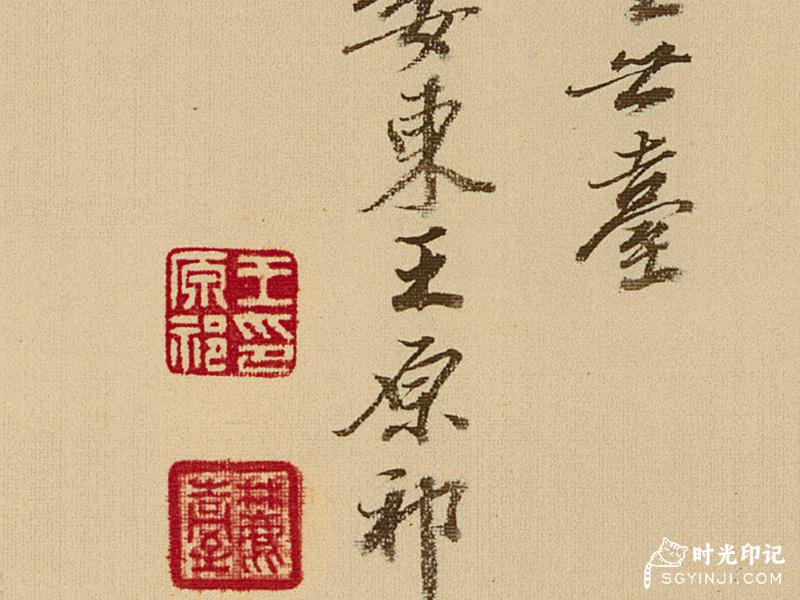 世臺
婁東王原祁
王印
原祁
麓臺
时光印记
SGYINJI.COM